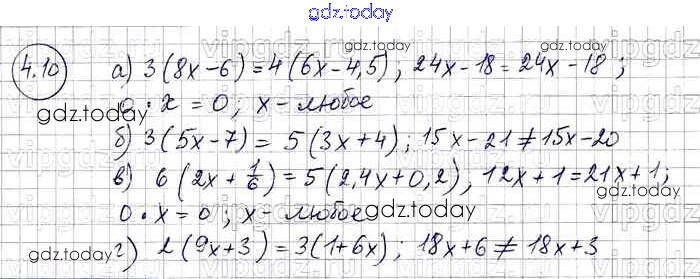 gdz.today
4.10 а) 3(8x-6)=4(6x-4,5); 24x-18=24x-18;
0·x=0; x-любое
б) 3(5x-7)=5(3x+4); 15x-21≠15x-20
в) 6(2x+1/6)=5(2,4x+0,2), 12x+1=21x+1;
0·x=0; x-любое
г) 2(9x+3)=3(1+6x); 18x+6≠18x+3
gdz.today
gdz.today
gdz.today
gdz.today
gdz.today
gdz.today